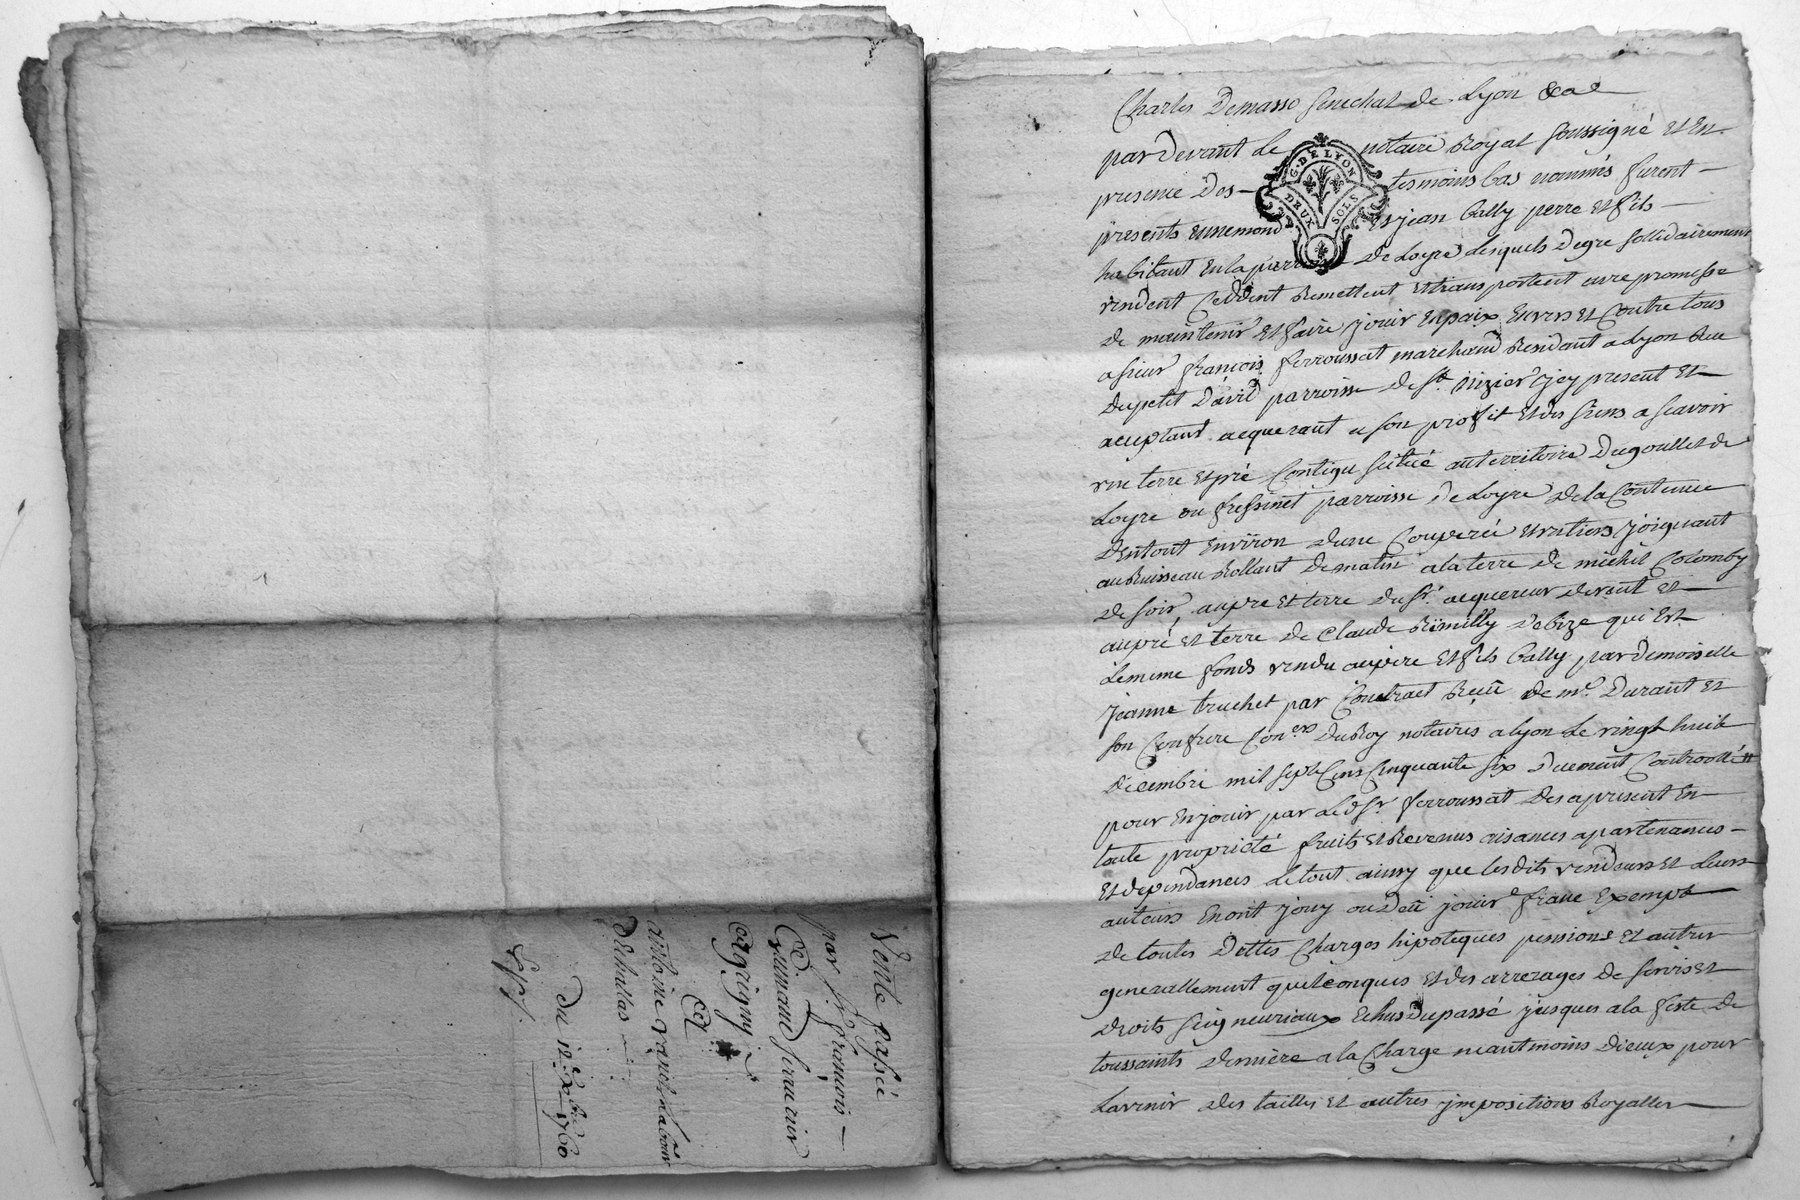 Vente passée
par Sr. francois
Grimaud Serrurier
a Grigny
a
antoine vanel labour
dEchallas
Du 12e Xbre 1760
Exp.
Charles Demasso Senechal de Lyon &a
par Devant Le notaire Royal Soussigné Et En
presence Des temoins bas nommés furent
presents Ennemond Et jean bally perre Et fils
habitant En la parroisse De Loyre Lesquels De gre sollidairement
vendent Ceddent Remettent Et transportent avec promesse
De maintenir Et faire jouir En paix Envers Et Contre tous
a sieur françois ferroussat marchand Residant a Lyon Rue
Du petit David parroisse De St. Nizier jcy present Et
aceptant acquerant a son profit Et des siens a scavoir
vne terre Et pré Contigu scitué au territoire Du goullet de
Loyre ou fressinet parroisse De Loyre De la Contenue
En tout Environ Dune Couperée Et vn tiers joignant
au Ruisseau Rollant De matin a la terre De michel Colomby
De soir, au pre Et terre Du Sr. acquereur De vent Et
au pré Et terre De Claude Rimilly De bize qui Est
Le meme fonds vendu au pere Et fils bally par Demoiselle
jeanne truchet par Contract Reçû De me. Durant Et
son Confrere Con.ers Du Roy notaires a lyon Le vingt huit
Decembre mil sept Cens Cinquante six Duement Controollé
pour En jouir par Led. Sr. ferroussat Des a present En
toute proprieté fruits Et Revenus aisances apartenances
Et dependances Le tout ainsy que lesdits vendeurs Et Leurs
auteurs En ont jouy ou Deû jouir franc Exempt
De toutes Dettes Charges hipoteques pensions Et autres
generallement quelconques Et des arrerages De servis Et
Droits seigneuriaux Echus Du passé jusques a la feste De
toussaints Derniere a la Charge neantmoins Diceux pour
Lavenir Des tailles Et autres jmpositions Royalles